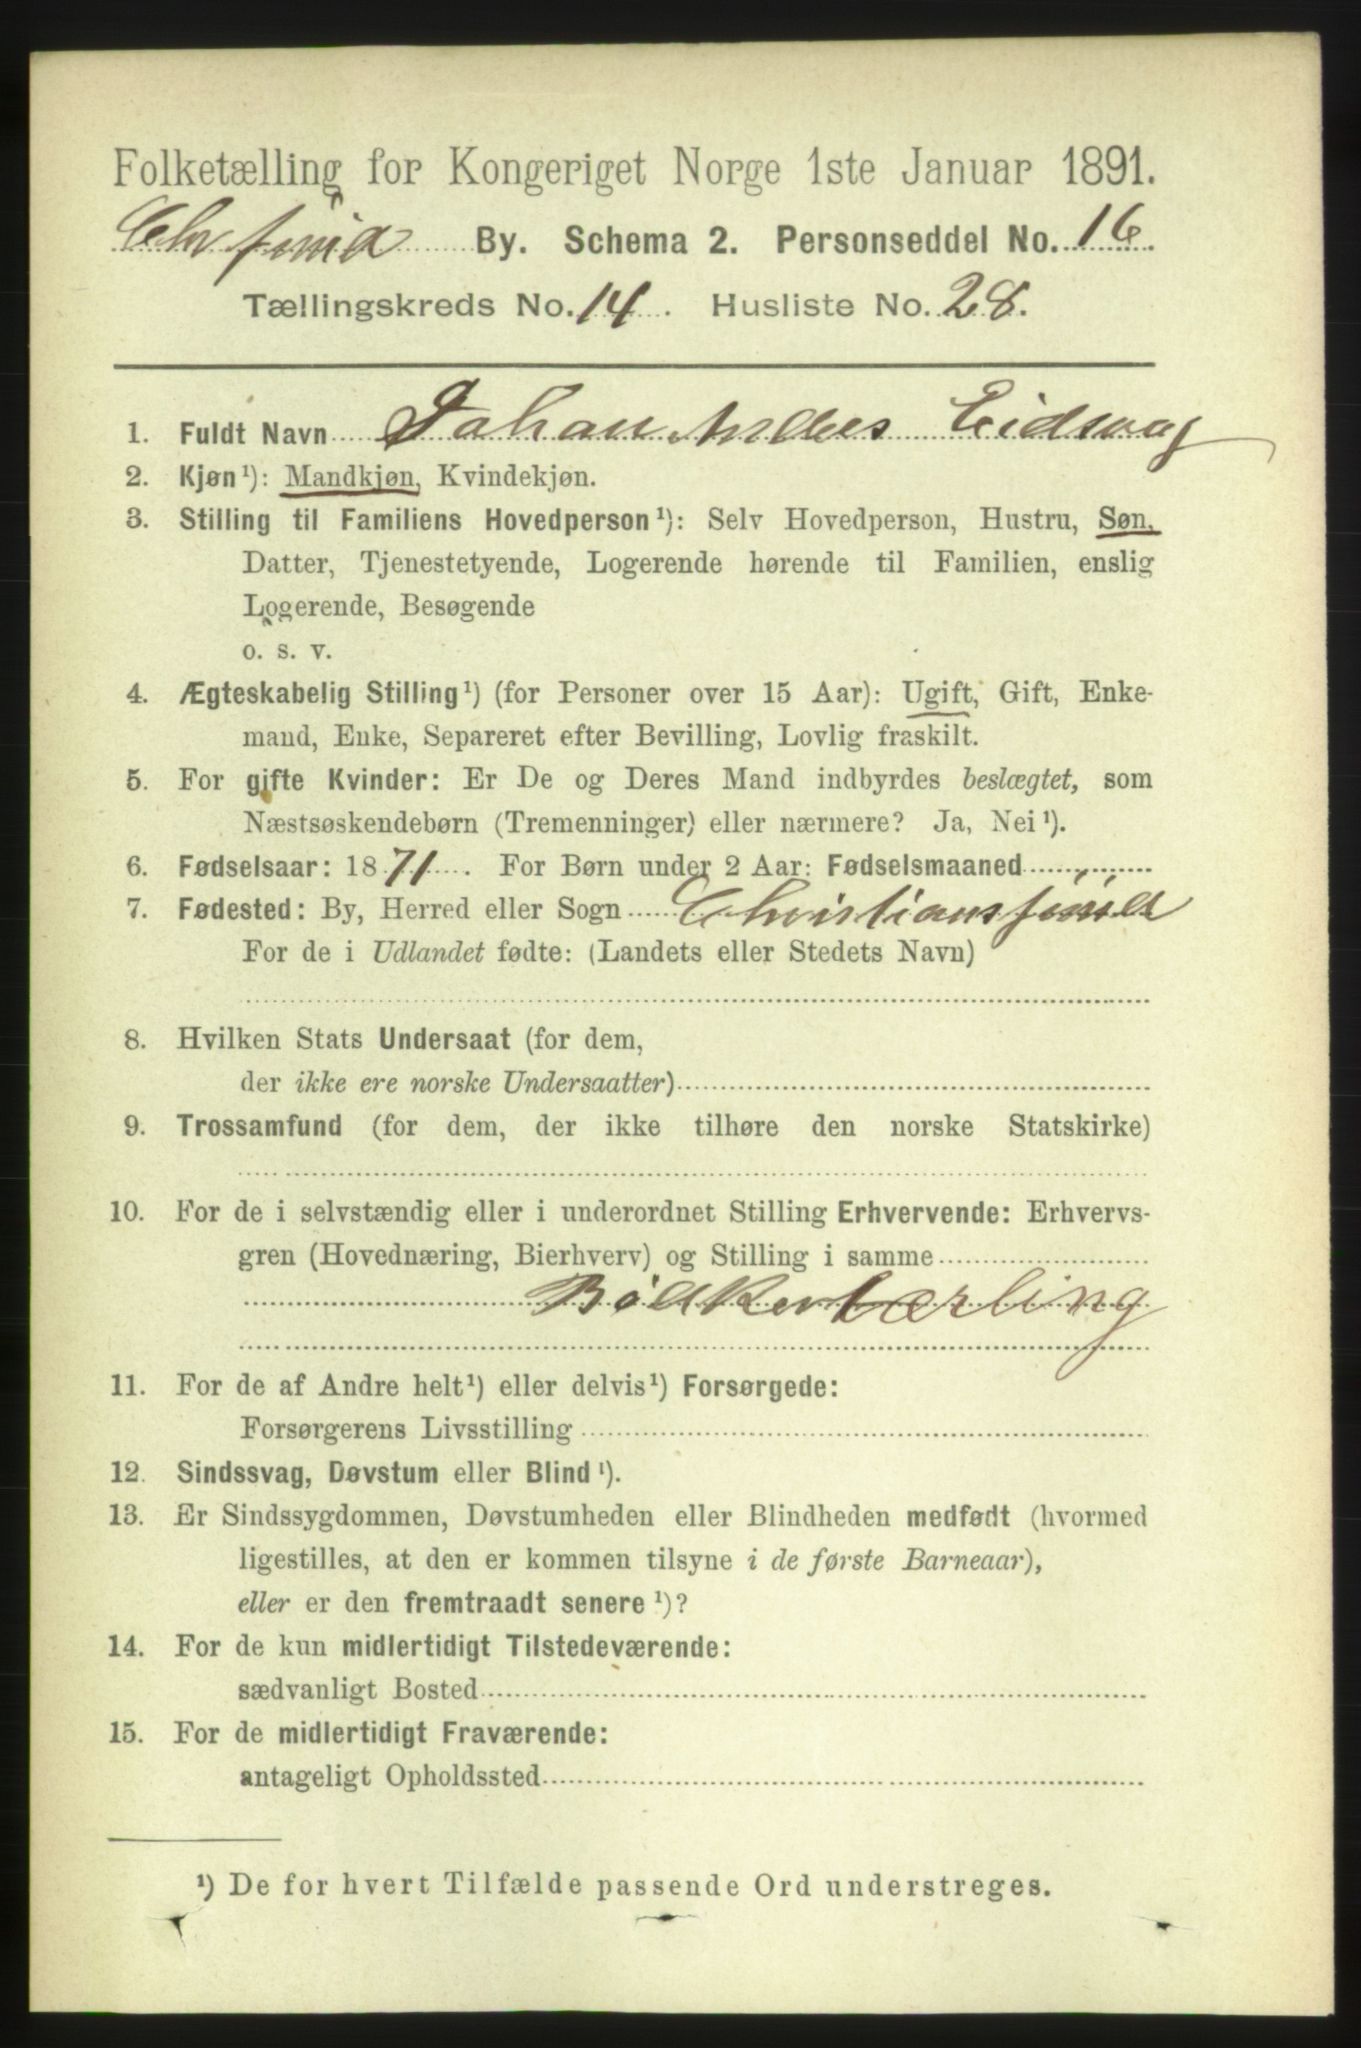 Folketælling for Kongeriget Norge 1ste Januar 1891.
Chrsund By. Schema 2. Personseddel No. 16.
Tællingskreds No. 14. Husliste No. 28.
1. Fuldt Navn Johan Anders Eidsvag
2. Kjøn¹): Mandkjøn, Kvindekjøn.
3. Stilling til Familiens Hovedperson¹): Selv Hovedperson, Hustru, Søn,
Datter, Tjenestetyende, Logerende hørende til Familien, enslig
Logerende, Besøgende
o. s. v.
4. Ægteskabelig Stilling¹) (for Personer over 15 Aar): Ugift, Gift, Enke-
mand, Enke, Separeret efter Bevilling, Lovlig fraskilt.
5. For gifte Kvinder: Er De og Deres Mand indbyrdes beslægtet, som
Næstsøskendebørn (Tremenninger) eller nærmere? Ja, Nei¹).
6. Fødselsaar: 1871. For Børn under 2 Aar: Fødselsmaaned
7. Fødested: By, Herred eller Sogn Christianssund
For de i Udlandet fødte: (Landets eller Stedets Navn)
8. Hvilken Stats Undersaat (for dem,
der ikke ere norske Undersaatter)
9. Trossamfund (for dem, der ikke tilhøre den norske Statskirke)
10. For de i selvstændig eller i underordnet Stilling Erhvervende: Erhvervs-
gren (Hovednæring, Bierhverv) og Stilling i samme
Bødkerlærling
11. For de af Andre helt¹) eller delvis¹) Forsørgede:
Forsørgerens Livsstilling
12. Sindssvag, Døvstum eller Blind¹).
13. Er Sindssygdommen, Døvstumheden eller Blindheden medfødt (hvormed
ligestilles, at den er kommen tilsyne i de første Barneaar),
eller er den fremtraadt senere¹)?
14. For de kun midlertidigt Tilstedeværende:
sædvanligt Bosted
15. For de midlertidigt Fraværende:
antageligt Opholdssted
¹) De for hvert Tilfælde passende Ord understreges.